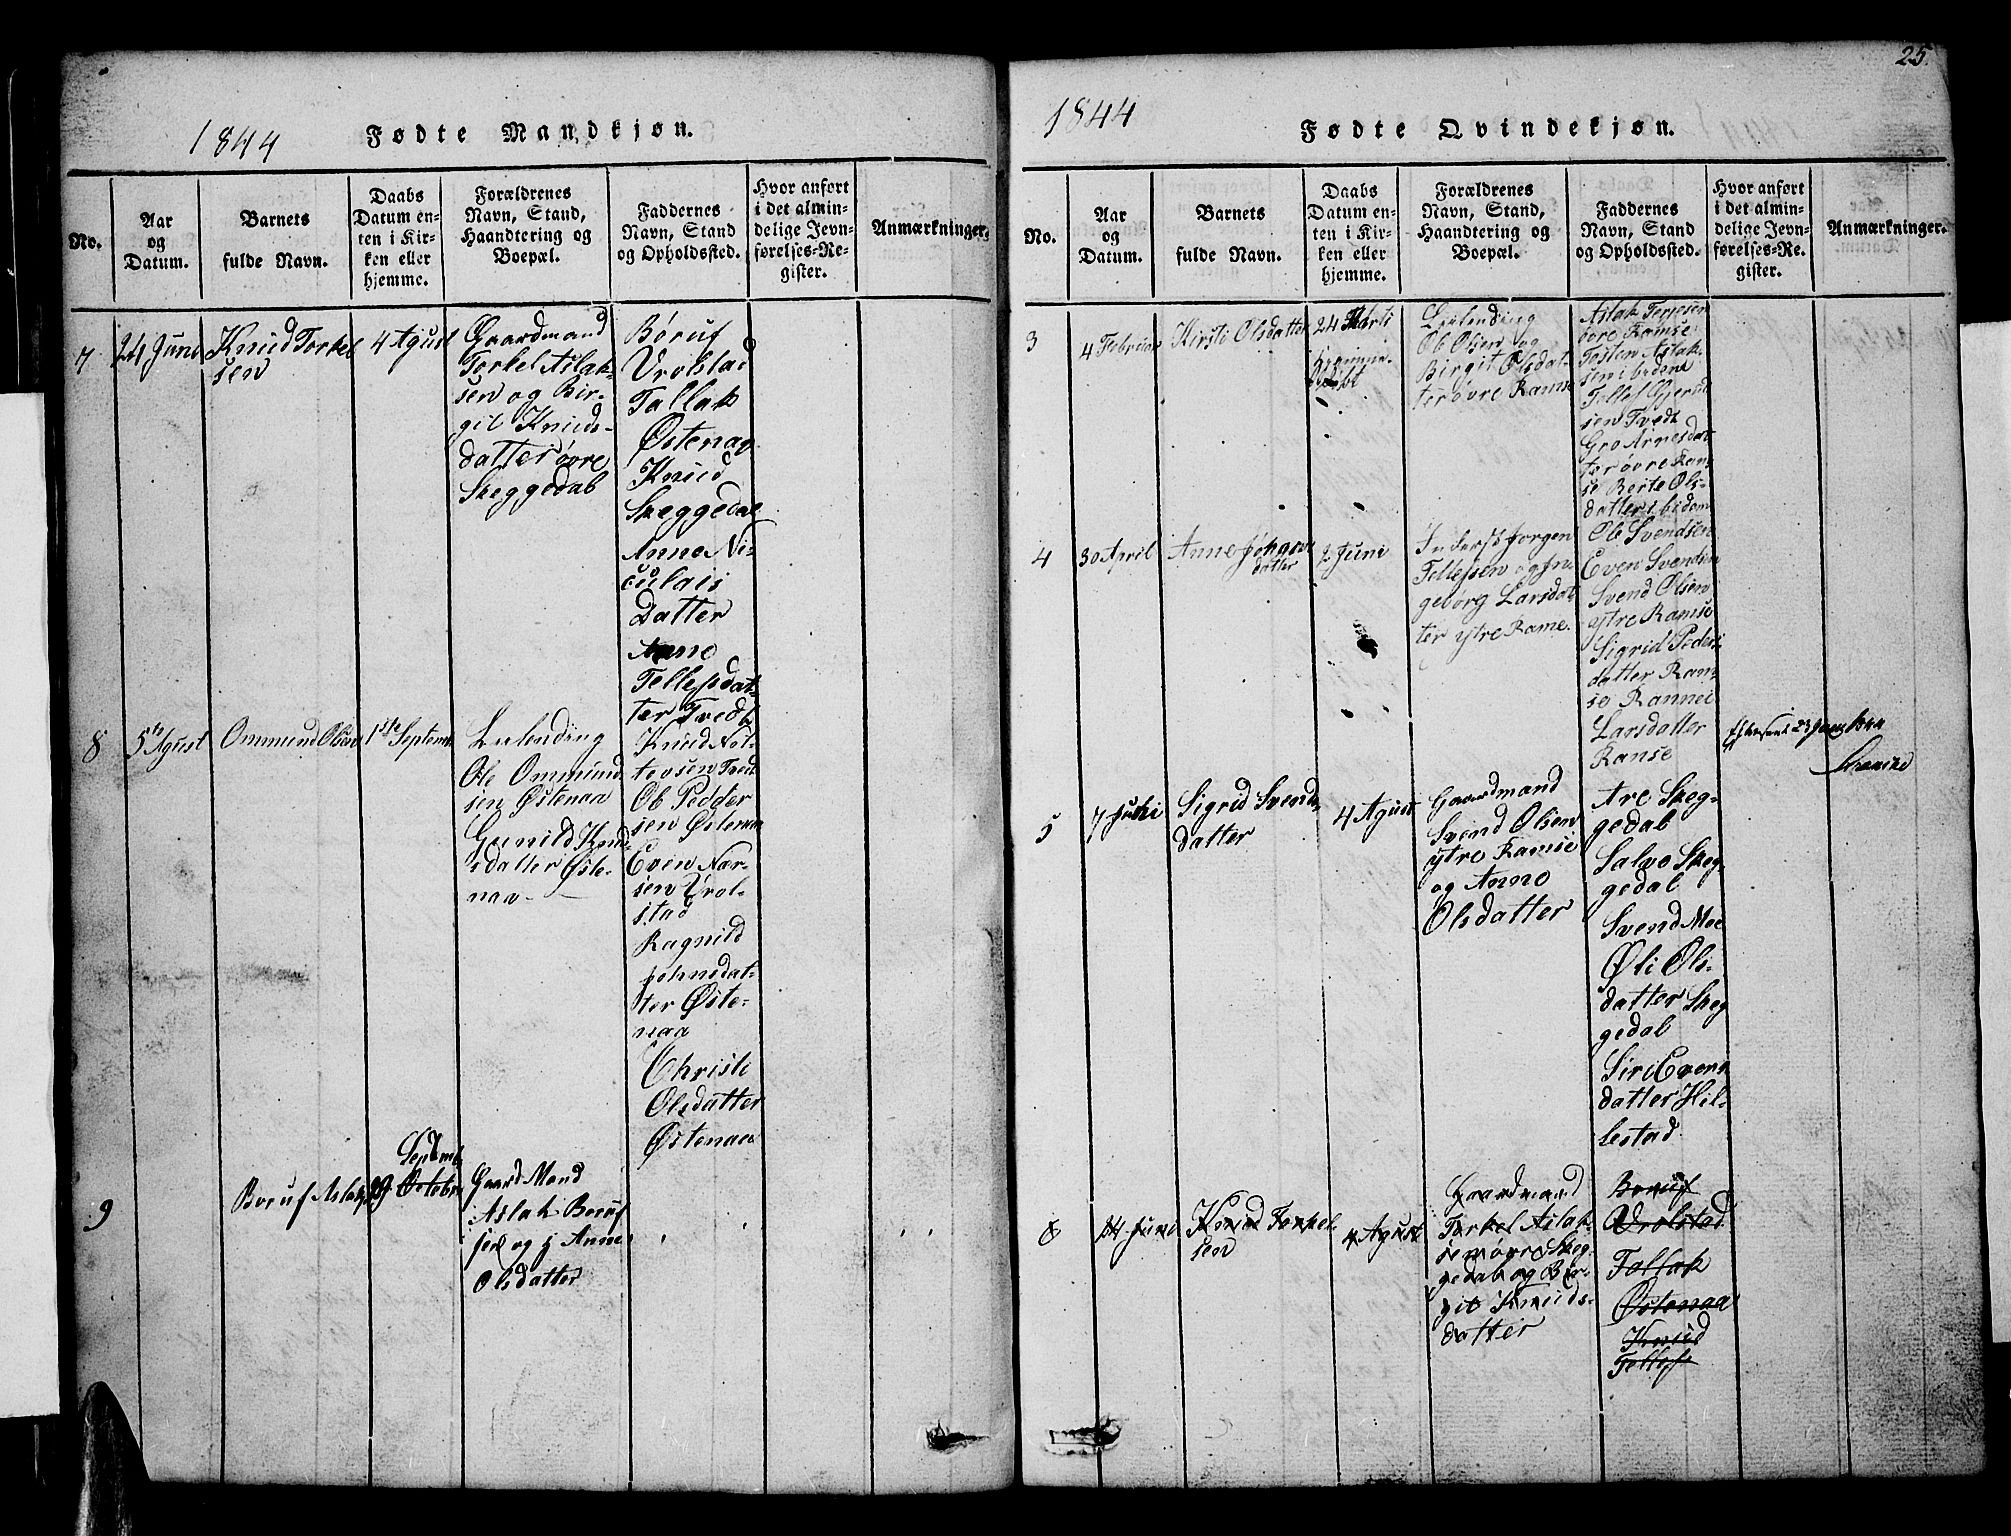 25.
1844 Fødte Mandkjøn.
No.
Aar
og
Datum.
Barnets
fulde Navn.
Daabs
Datum en-
ten i Kir-
ken eller
hjemme.
Forældrenes
Navn, Stand,
Haandtering og
Boepæl.
Faddernes
Navn, Stand
og Opholdssted.
Hvor anført
i det almin-
delige Jevn-
førelses-Re-
gister.
Anmærkninger.
7
24 Juni
Knud Torkel
sen
4 Agust
Gaardmand
Torkel Aslak-
sen og Bir-
git Knuds-
datter øvre
Skeggedal
Böruf
Vrolstad
Tallak
Østenaa
Knud
Skeggedal
Anne Ni-
culais
Datter
Anne
Tellefsdat-
ter Tvedt
8
5te Agust
Ommund Olsen
1ste Septem
Leilending
Ole Ommund
sen Østenaa
Gunild Knud
sdatter Øste-
naa
Ole Pedder
sen Østenaa
Even
sen Vrol-
stad
Ragnild
Johnsdat-
ter Øste-
naa
Christi
Olsdatter
Østenaa
9
Boruf Aslaks
29
Septmb
Octobr
Gaard Mand
Aslak Boruf
sen og Anne
Olsdatter
1844 Fødte Qvindekjøn.
No.
Aar
og
Datum.
Barnets
fulde Navn.
Daabs
Datum en-
ten i Kir-
ken eller
hjemme.
Forældrenes
Navn, Stand,
Haandtering og
Boepæl.
Faddernes
Navn, Stand
og Opholdssted.
Hvor anført
i det almin-
delige Jevn-
førelses-Re-
gister.
Anmærkninger.
3
4 Februar
Kirsti Olsdatter
24 Marti
Leilending
Ole Olsen og
Birgit Olsdat-
ter øvre Ramse
Aslak Terjesen
øvre Ramse
Tosten Aslak
sen ibidem
Tellef Gjeruld
sen Tvedt
Gro Arnesdat
ter øvre Ram
se Berte Ols-
datter ibidem
4
30 April
Anne Jörgens
datter
2 Juni
Inderst Jorgen
Tellefsen og In
geborg Larsdat
ter ytre Rame.
Ole Svendsen
Even Svendsen
Svend Olsen
ytre Ramse
Sigrid Peders
datter Ram
se Rannei
Larsdatter
Ramse
5
7 Juli
Sigrid Svends
datter
4 Agust
Gaardmand
Svend Olsen
ytre Ramse
og Anne
Olsdatter
Are Skeg-
gedal
Salve Skeg
gedal
Svend Moe
Øli Ols-
datter Skeg
gedal
Siri Evens
datter Hil-
lestad
6
14 Juni
Knud Torkel
sen
4 Agust
Gaardmand
Torkel Aslak
sen øvre Skeg
gedal og Bir-
git Knuds-
datter
Boruf
Vrolstad
Tallak
Østenaa
Knud
Tellefs